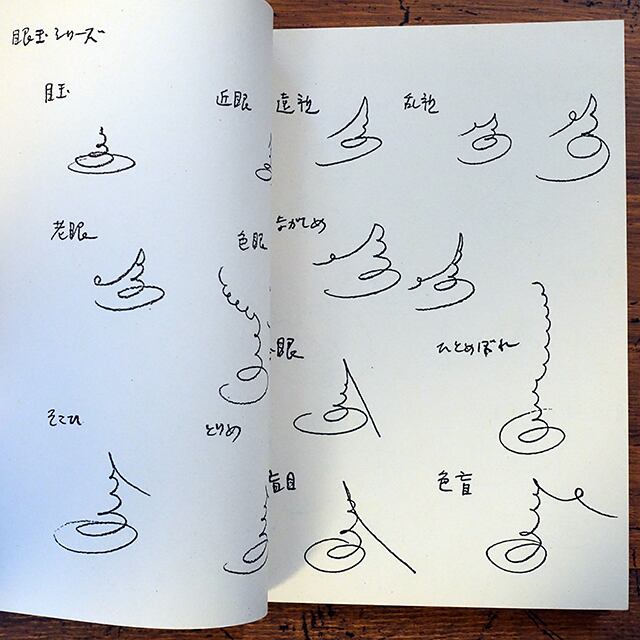 眼玉シリーズ
目玉
近眼
老眼
色眼
そこひ
とりめ
遠視
乱視
ながしめ
眼
ひとめぼれ
盲目
色盲